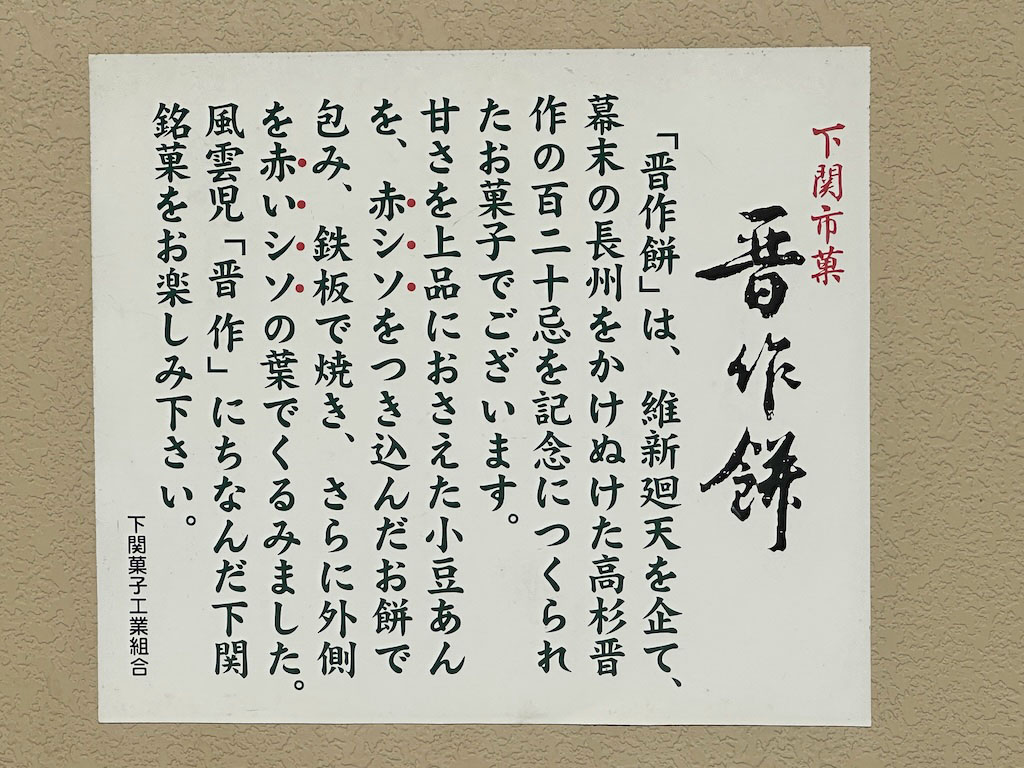 下関市菓
晋作餅
「晋作餅」は、維新廻天を企て、
幕末の長州をかけぬけた高杉晋
作の百二十忌を記念につくられ
たお菓子でございます。
甘さを上品におさえた小豆あん
を、赤シソをつき込んだお餅で
包み、鉄板で焼き、さらに外側
を赤いシソの葉でくるみました。
風雲児「晋作」にちなんだ下関
銘菓をお楽しみ下さい。
下関菓子工業組合